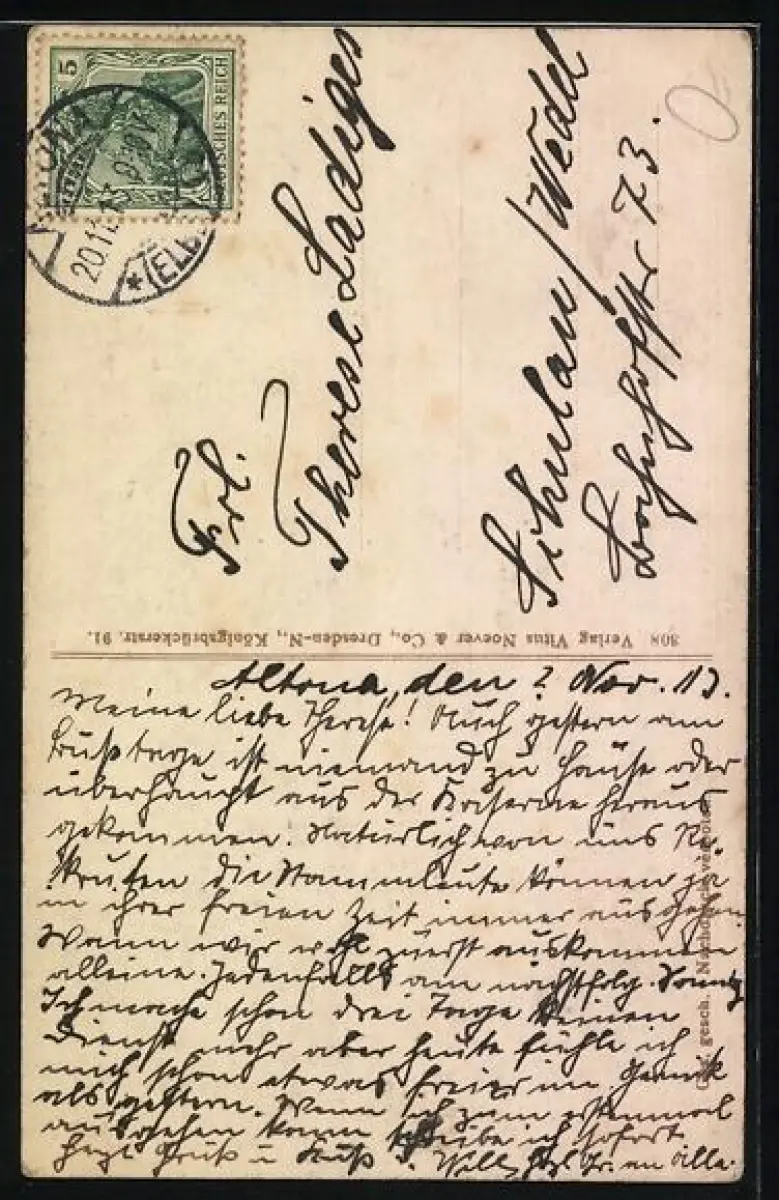 5
DEUTSCHES REICH
ALTONA
20.11.13
*(ELBE)
Frl.
Therese Ladiges
Schulau/Wedel
Bahnhofstr 73.
308 Verlag Vitus Noever & Co., Dresden-N., Königsbrückerstr. 91.
Altona, den ? Nov. 13.
Meine liebe Therese! Auch gestern am
Bußtage ist niemand zu Hause oder
überhaupt aus der Kaserne heraus
gekommen. Natürlich von uns Re-
kruten die Stammleute können ja
in ihrer freien Zeit immer ausgehen.
Wann wir wohl zuerst auskommen
alleine. Jedenfalls am nächstfolg. Sonntg
Ich mache schon drei Tage keinen
Dienst mehr aber heute fühle ich
mich schon etwas freier im Genick
als gestern. Wenn ich zum erstenmal
ausgehen kann schreibe ich sofort
Herzl Gruß u Kuß Willy Hzl Gr. an alle.
gesch. Nachdruck verboten